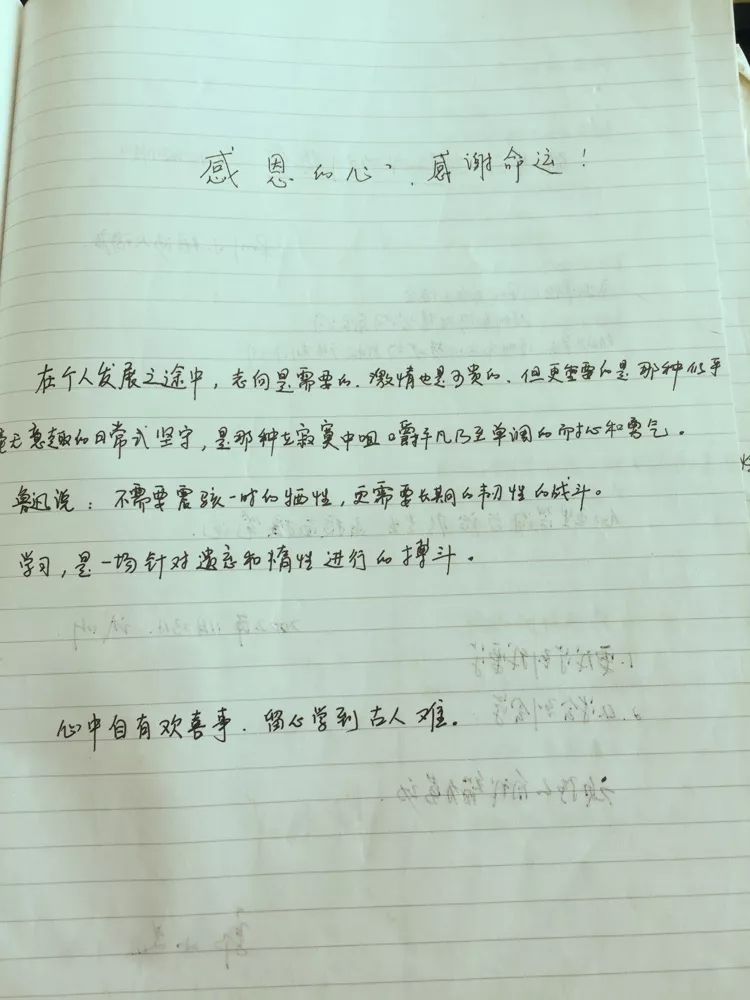 感恩的心，感谢命运！
在个人发展之途中，志向是需要的，激情也是可贵的，但更重要的是那种似乎
毫无意趣的日常式坚守，是那种在寂寞中咀嚼平凡乃至单调的耐心和勇气。
鲁迅说：不需要震骇一时的牺牲，更需要长期的韧性的战斗。
学习，是一场针对遗忘和惰性进行的搏斗。
心中自有欢喜事，留心学到古人难。